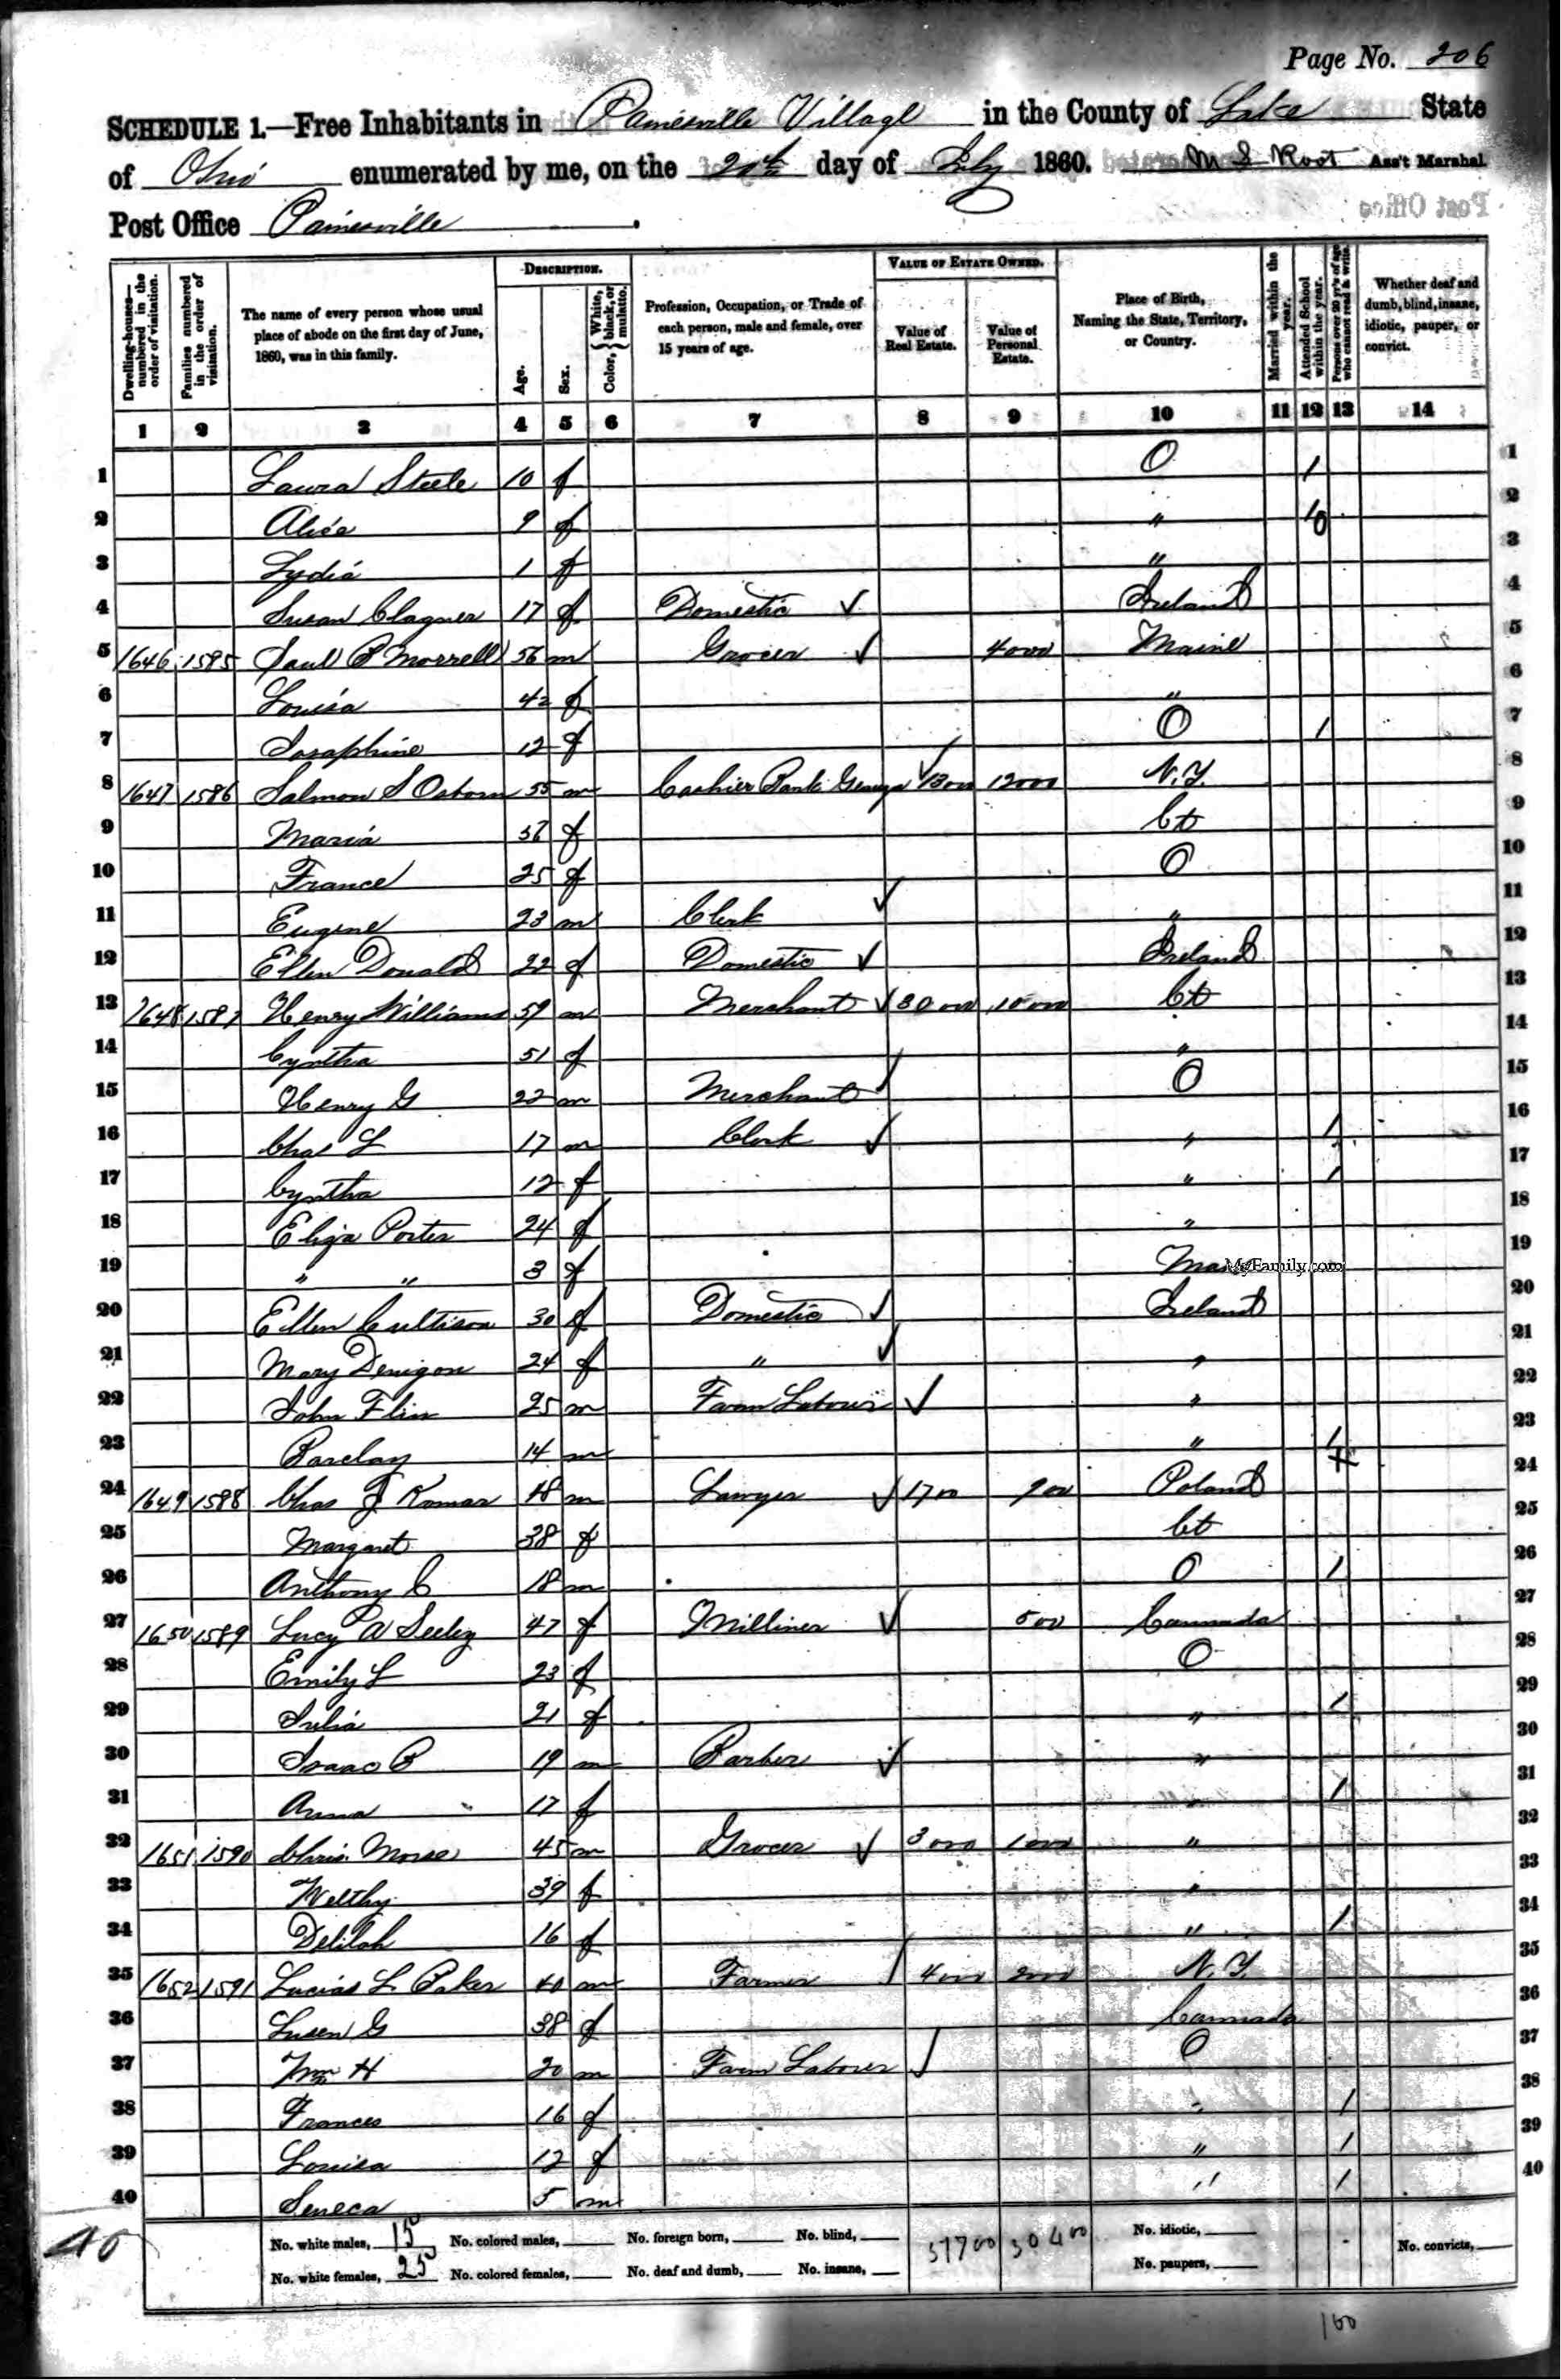 Page No. 206
SCHEDULE 1.—Free Inhabitants in Painesville Village in the County of Lake State
of Ohio enumerated by me, on the 20th day of July 1860. M S Root Ass't Marshal
Post Office Painesville
Post Office
Dwelling-houses—numbered in the order of visitation.
Families numbered in the order of visitation.
The name of every person whose usual place of abode on the first day of June, 1860, was in this family.
DESCRIPTION.
Age.
Sex.
Color, { White, black, or mulatto.
Profession, Occupation, or Trade of each person, male and female, over 15 years of age.
VALUE OF ESTATE OWNED.
Value of Real Estate.
Value of Personal Estate.
Place of Birth, Naming the State, Territory, or Country.
Married within the year.
Attended School within the year.
Persons over 20 y'rs of age who cannot read & write.
Whether deaf and dumb, blind, insane, idiotic, pauper, or convict.
1 2 3 4 5 6 7 8 9 10 11 12 13 14
1 Laura Steele 10 f O 1 1
2 Alice 9 f " 1 2
3 Lydia 1 f " 3
4 Susan Clagner 17 f Domestic ✓ Ireland 4
5 1646 1595 Paul C Morrell 56 m Grocer ✓ 4000 Maine 5
6 Louisa 42 f " 6
7 Josaphine 12 f O 1 7
8 1647 1586 Salmon S Osborn 55 m Cashier Bank Geauga ✓ 13000 12000 N.Y. 8
9 Maria f Ct 9
10 France 25 f O 10
11 Eugene 23 m Clerk ✓ " 11
12 Ellen Donald 22 f Domestic ✓ Ireland 12
13 1648 1587 Henry Williams 59 m Merchant ✓ 30000 10000 Ct 13
14 Cyntha 51 f " 14
15 Henry G 22 m Merchant ✓ O 15
16 Chas L 17 m Clerk ✓ " 1 16
17 Cyntha 12 f " 1 17
18 Eliza Porter 24 f " 18
19 " " 3 f MyFamily.com 19
20 Ellen 30 f Domestic ✓ Ireland 20
21 Mary Denigon 24 f " ✓ " 21
22 John Flin 25 m Farm Laborer ✓ " 22
23 Barclay 14 m " 1 23
24 1649 1588 Chas J Romar 48 m Lawyer ✓ 1700 900 Poland 24
25 Margaret 38 f Ct 25
26 Anthony C 18 m O 1 26
27 1650 1589 Lucy A Seeley 47 f Milliner ✓ 500 Cannada 27
28 Emily L 23 f O 28
29 Julia 21 f " 1 29
30 Isaac B 19 m Barber ✓ " 30
31 Anna 17 f " 1 31
32 1651 1590 Chris Morse 45 m Grocer ✓ 3000 1000 " 32
33 Welthy 39 f " 33
34 Delilah 16 f " 1 34
35 1652 1591 Lucias L Baker 40 m Farmer ✓ 4000 2000 N.Y. 35
36 Lusen G 38 f Cannada 36
37 Wm H 20 m Farm Laborer ✓ O 37
38 Frances 16 f " 1 38
39 Louisa 12 f " 1 39
40 Seneca 5 m " 1 40
40
No. white males, 15 No. colored males, No. foreign born, No. blind, 51700 30400 No. idiotic,
No. white females, 25 No. colored females, No. deaf and dumb, No. insane, No. paupers, No. convicts,
160